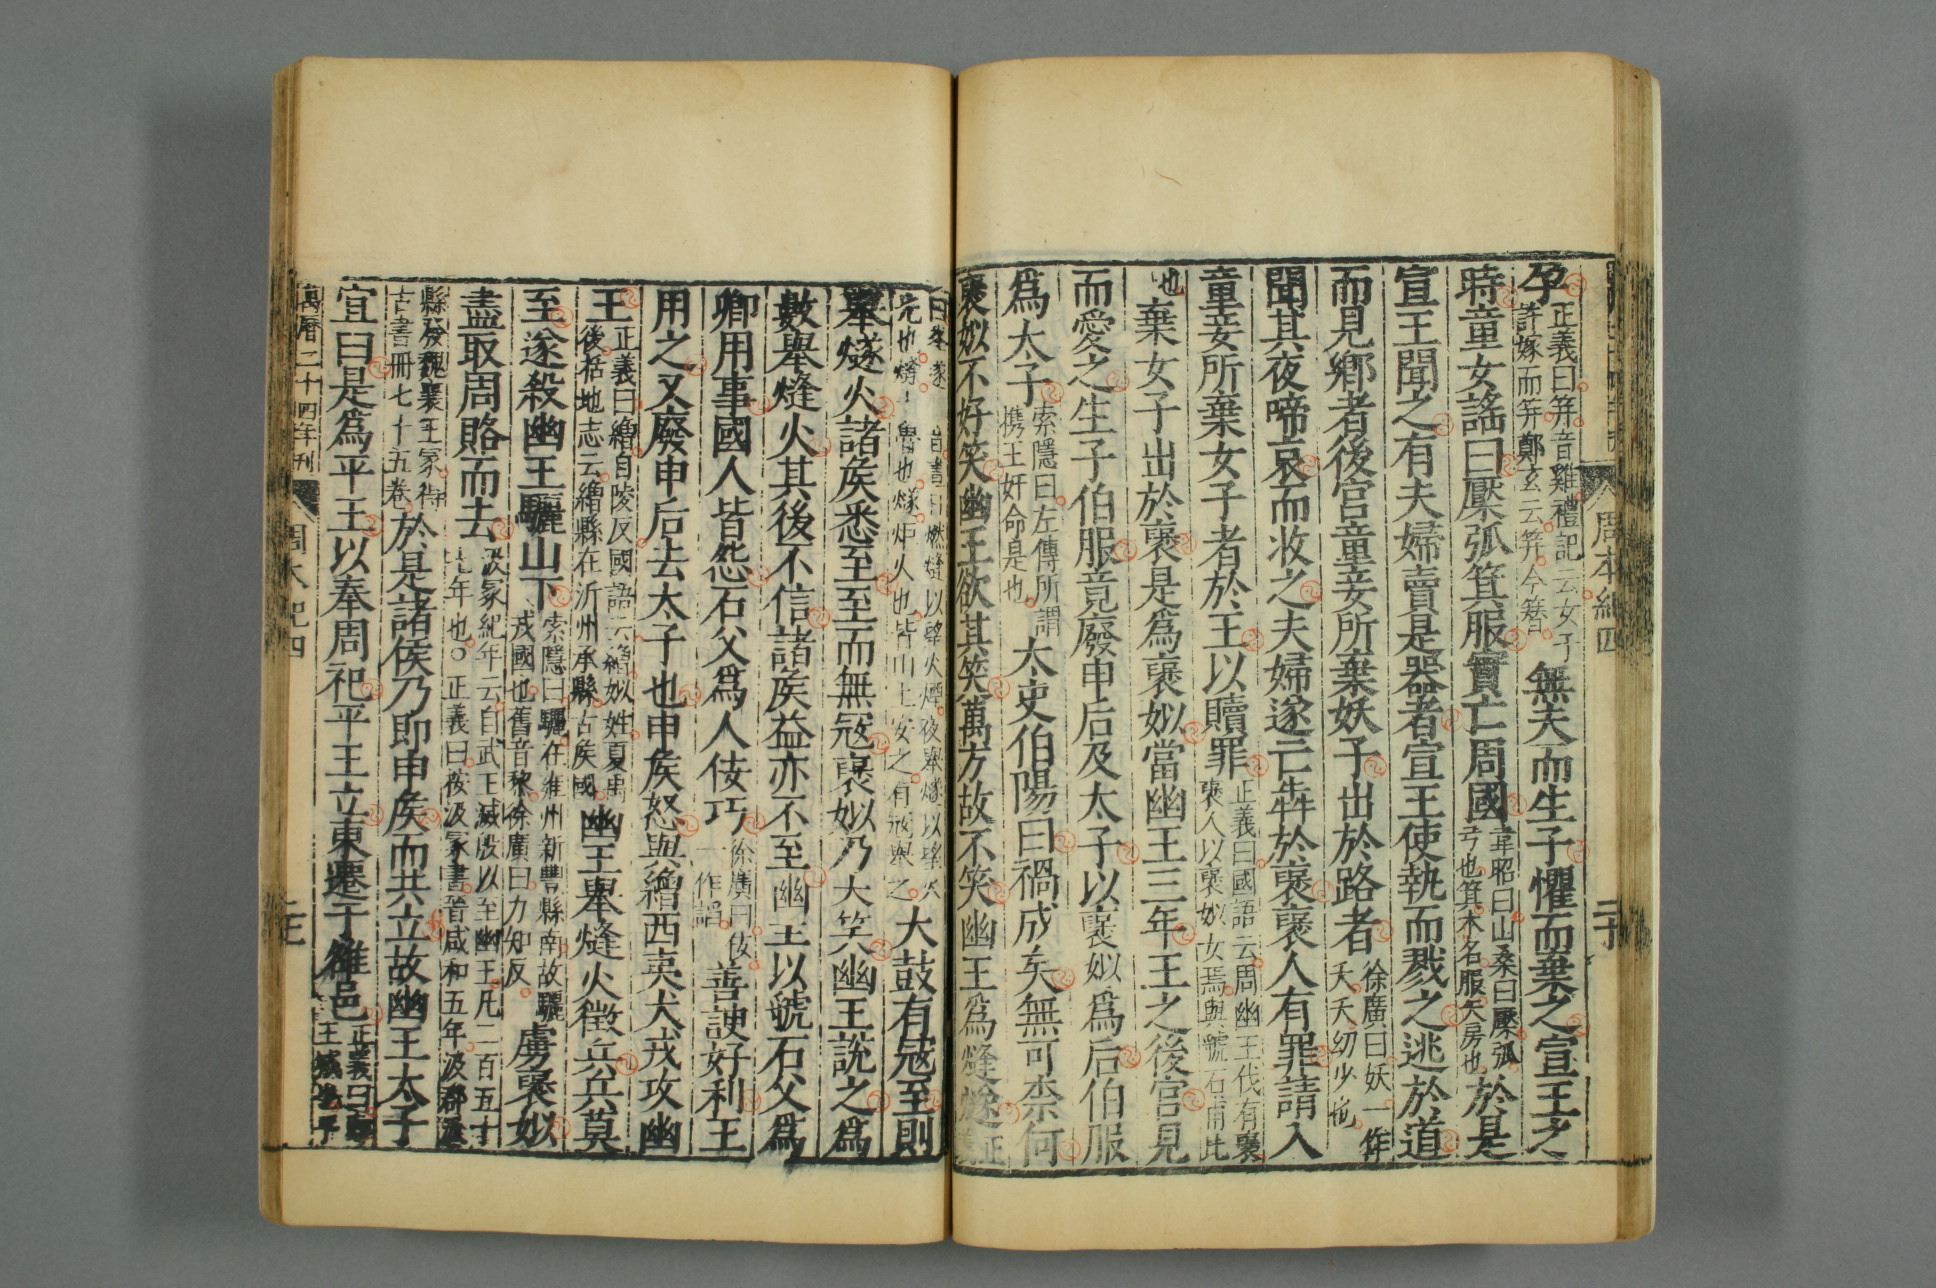 孕正義曰笄音雞禮記云女子許嫁而笄鄭玄云笄今簪無夫而生子懼而棄之宣王之
時童女謠曰檿弧箕服實亡周國韋昭曰山桑曰檿弧弓也箕木名服矢房也於是
宣王聞之有夫婦賣是器者宣王使執而戮之逃於道
而見鄉者後宮童妾所棄妖子出於路者徐廣曰妖一作夭夭幼少也
聞其夜啼哀而收之夫婦遂亡犇於褒褒人有罪請入
童妾所棄女子者於王以贖罪正義曰國語云周幽王伐有褒褒人以褒姒女焉與虢石甫比
也棄女子出於褒是爲褒姒當幽王三年王之後宮見
而愛之生子伯服竟廢申后及太子以褒姒爲后伯服
爲太子索隱曰左傳所謂携王奸命是也太史伯陽曰禍成矣無可柰何
褒姒不好笑幽王欲其笑萬方故不笑幽王爲㷭燧正義
燃㷭以望火煙夜舉燧以望火也燧炬火也皆山上安之有寇舉之大鼓有寇至則
舉㷭火諸矦悉至至而無寇褒姒乃大笑幽王說之爲
數舉㷭火其後不信諸矦益亦不至幽王以虢石父爲
卿用事國人皆怨石父爲人佞巧徐廣曰佞一作謟善諛好利王
用之又廢申后去太子也申矦怒與繒西夷犬戎攻幽
王正義曰繒自陵反國語云繒姒姓夏禹後括地志云繒縣在沂州承縣古矦國幽王舉㷭火徵兵兵莫
至遂殺幽王驪山下索隱曰驪在雍州新豐縣南故驪戎國也舊音黎徐廣曰力知反虜褒姒
盡取周賂而去汲冢紀年云自武王滅殷以至幽王凡二百五十七年也○正義曰按汲冢書晉咸和五年汲郡汲
縣發魏襄王冢得古書冊七十五卷於是諸侯乃即申矦而共立故幽王太子
宜臼是爲平王以奉周祀平王立東遷于雒邑正義曰
萬曆二十四年刊
周本紀四